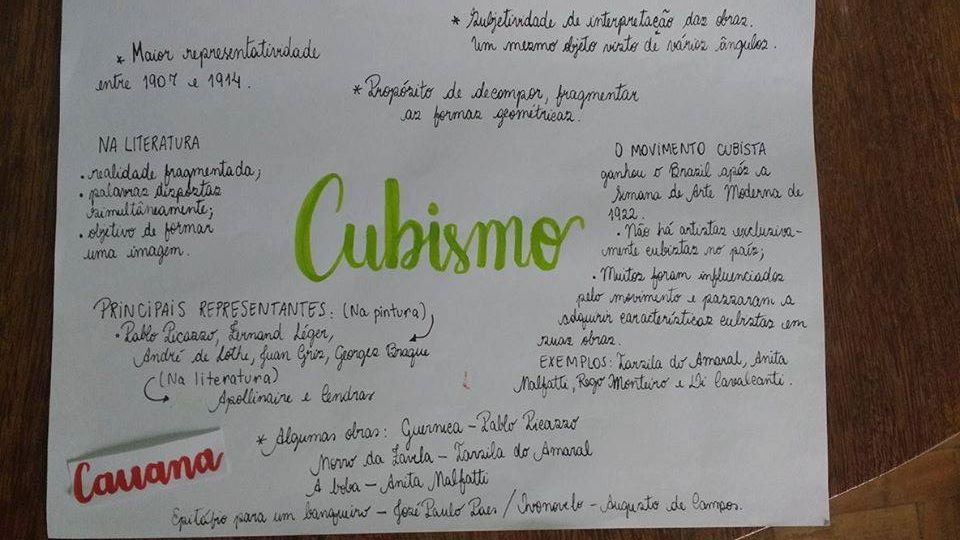 * Subjetividade de interpretação das obras.
Um mesmo objeto visto de vários ângulos.
* Maior representatividade
entre 1907 e 1914.
* Propósito de decompor, fragmentar
as formas geométricas.
NA LITERATURA
• realidade fragmentada;
• palavras dispostas
simultâneamente;
• objetivo de formar
uma imagem.
Cubismo
O MOVIMENTO CUBISTA
ganhou o Brasil após a
Semana de Arte Moderna de
1922.
• Não há artistas exclusiva-
mente cubistas no país;
• Muitos foram influenciados
pelo movimento e passaram a
adquirir características cubistas em
suas obras.
EXEMPLOS: Tarsila do Amaral, Anita
Malfatti, Rego Monteiro e Di Cavalcanti.
PRINCIPAIS REPRESENTANTES: (Na pintura)
• Pablo Picasso, Fernand Léger,
André de Lothe, Juan Gris, Georges Braque
(Na literatura)
Apollinaire e Cendras
Cauana
* Algumas obras: Guernica – Pablo Picasso
Morro da Favela – Tarsila do Amaral
A boba – Anita Malfatti
Epitáfio para um banqueiro – José Paulo Paes / Ivonovelo – Augusto de Campos.